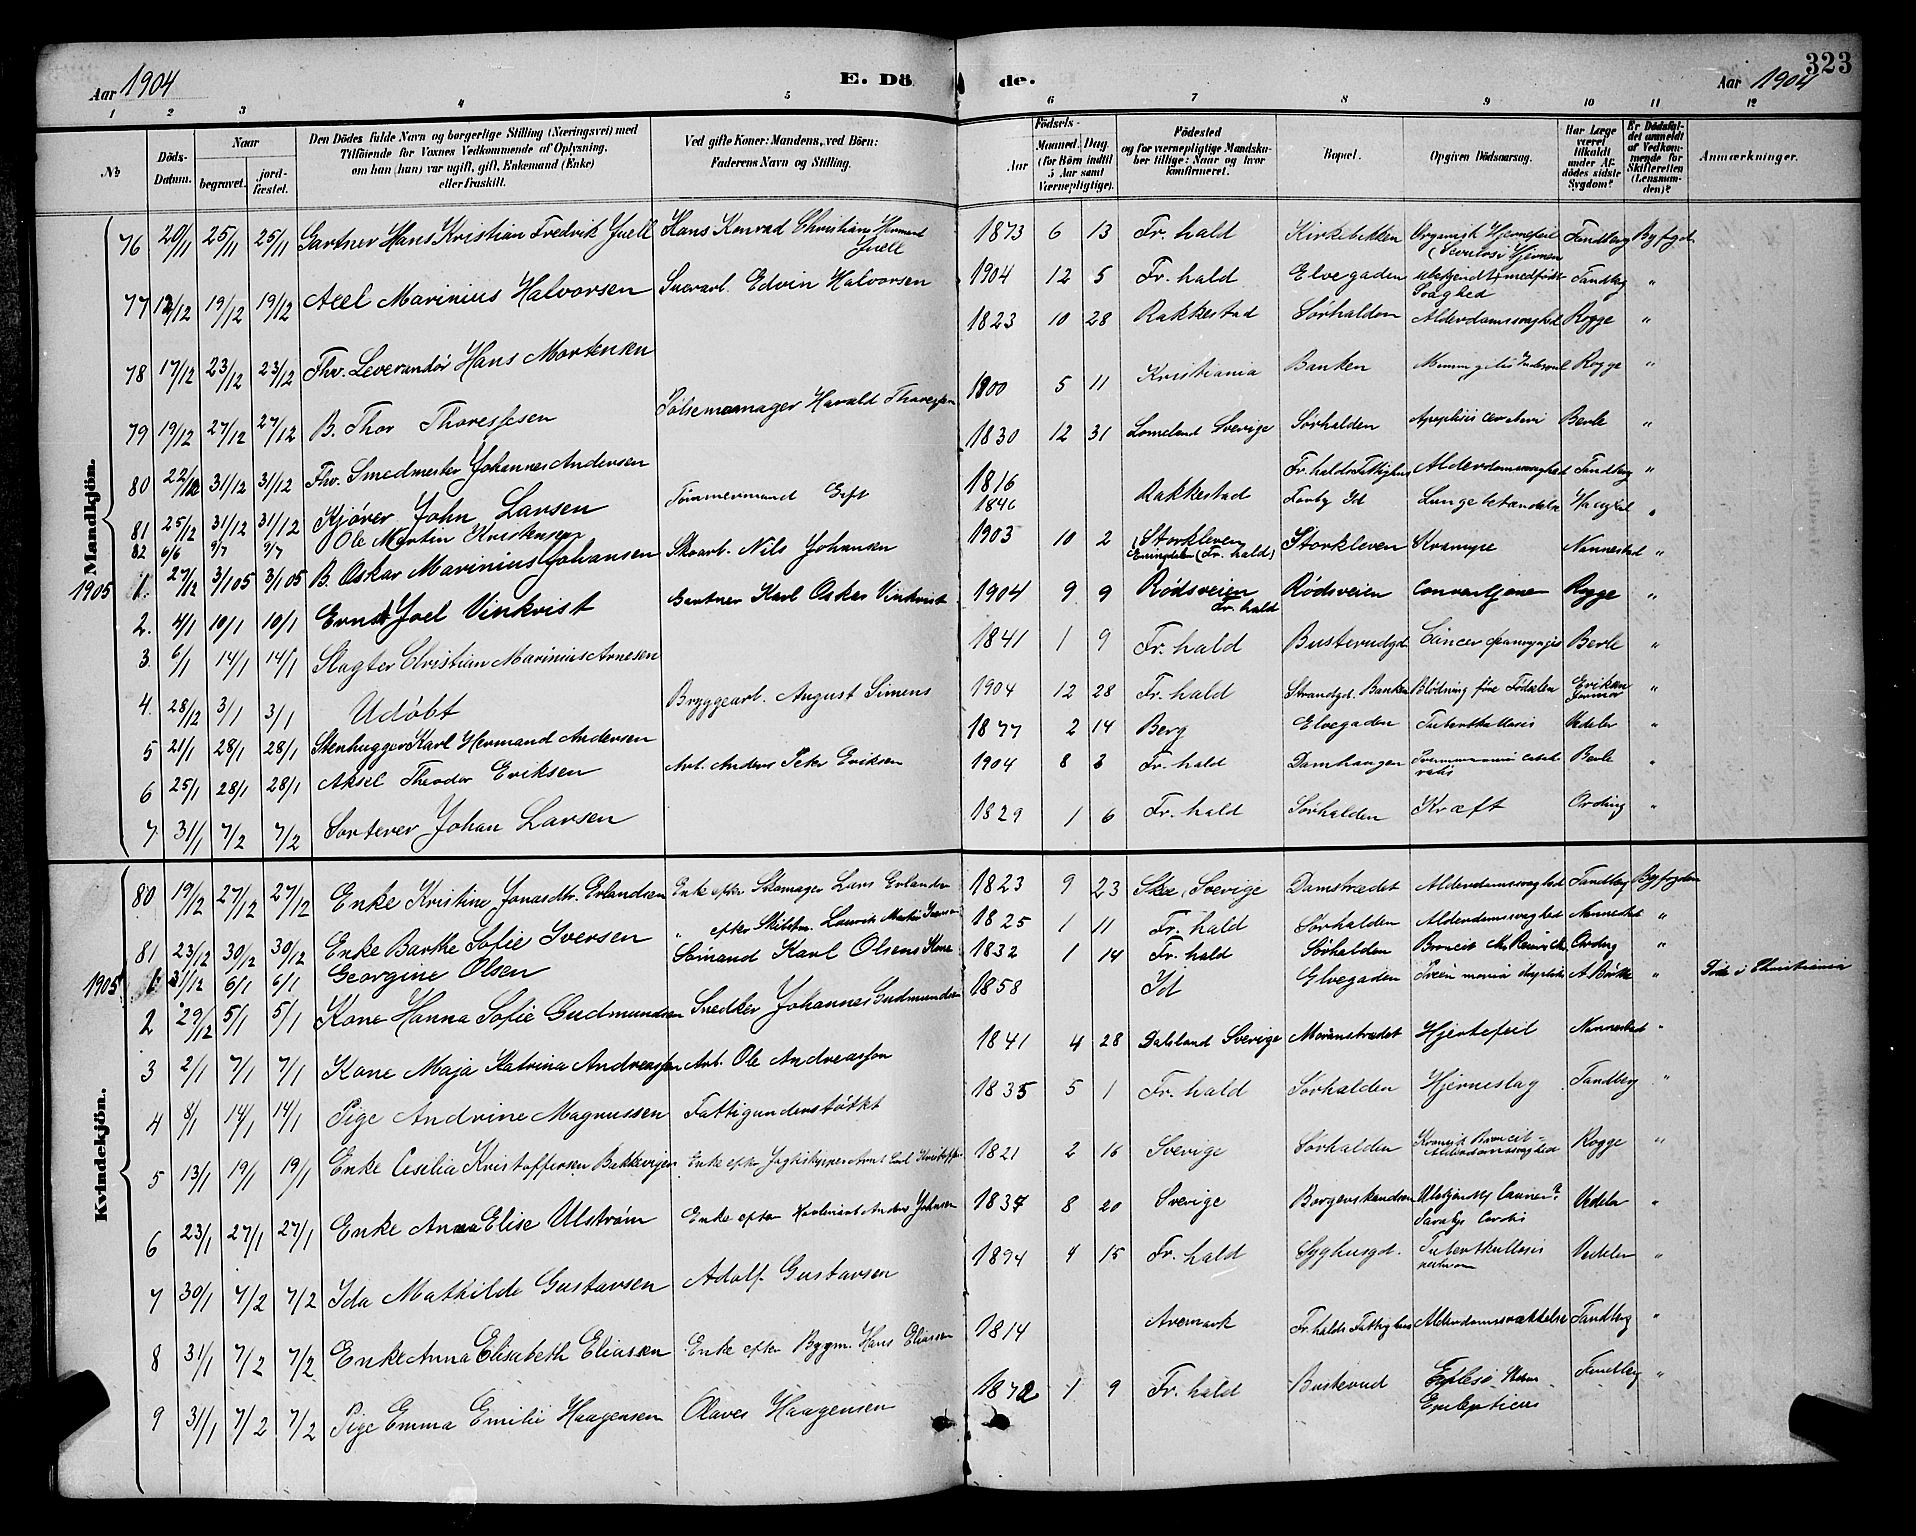 323
Aar 1904
E. Dö
de.
Aar 1904
1 2 3 4 5 6 7 8 9 10 11 12
No
Döds-Datum.
Naar
begravet.
jord-fæstet.
Den Dödes fulde Navn og borgerlige Stilling (Næringsvei) med Tilföiende for Voxnes Vedkommende af Oplysning, om han (hun) var ugift, gift, Enkemand (Enke) eller fraskilt.
Ved gifte Koner: Mandens, ved Börn: Faderens Navn og Stilling.
Födsels-
Aar
Maaned. Dag.
(for Börn indtil 5 Aar samt Værnepligtige).
Födested og for værnepligtige Mandskaber tillige: Naar og hvor konfirmeret.
Bopæl.
Opgiven Dödsaarsag.
Har Læge været tilkaldt under Afdödes sidste Sygdom?
Er Dödsfaldet anmeldt af Vedkommende for Skifteretten (Lensmanden)?
Anmærkninger.
Mandkjön.
76 20/11 25/11 25/11 Gartner Hans Kristian Fredrik Juell Hans Konrad Christian Hermand Juell 1873 6 13 Fr. hald Kirkebakken Organisk Hjernefeil Tandberg Byfogden
77 12/12 19/12 19/12 Axel Marinius Halvorsen Edvin Halvorsen 1904 12 5 Fr. hald Elvegaden medfödt Svaghed Tandberg "
78 17/12 23/12 23/12 Fhv. Leverandör Hans Mortensen 1823 10 28 Rakkestad Sörhalden Alderdomssvaghed Rogge "
79 19/12 27/12 27/12 B. Thor Thoresen Pölsemager Harald Thoresen 1800 5 11 Kristiania Banken Rogge "
80 22/12 31/12 31/12 Fhv. Smedmester Johannes Andersen 1830 12 31 Sverige Sörhalden Berle "
81 25/12 31/12 31/12 Kjörer John Larsen 1816 Fr. halds Fattighus Alderdomssvaghed Tandberg "
82 6/6 9/7 9/7 Ole Martin Kristensen Tömmermand Gift 1846 Rakkestad Id Lungebetændelse "
1905
1. 27/12 3/1 05 3/1 05 B. Oskar Marinius Johansen Skoarb. Nils Johansen 1903 10 2 Storkleven Enningdalen (Fr. hald) Storkleven Krampe Nannestad "
2. 4/1 10/1 10/1 Ernst Joel Vinkvist Gartner Karl Oskar Vinkvist 1904 9 9 Rödsveien Fr. hald Rödsveien Convulsjoner Rogge "
3. 6/1 14/1 14/1 Slagter Christian Marinius Arnesen 1841 1 9 Fr. hald Busterudgd. Cancer Berle "
4. 28/12 3/1 3/1 Udöbt Bryggearb. August Simens 1904 12 28 Fr. hald Strandgd. Banken Blödning före Födselen "
5 21/1 28/1 28/1 Stenhugger Karl Hermand Andersen 1877 2 14 Berg Elvegaden Tuberkulosis Vedeler "
6 25/1 28/1 28/1 Aksel Theodor Eriksen Arb. Anders Peter Eriksen 1904 8 3 Fr. hald Damhaugen Berle "
7 31/1 7/2 7/2 Sorterer Johan Larsen 1829 1 6 Fr. hald Sörhalden Kræft Ording "
Kvindekjön.
80 19/12 27/12 27/12 Enke Kristine Jonasdtr. Erlandsen Enke efter Skomager Lars Erlandsen 1823 9 23 Skee, Sverige Damstrædet Alderdomssvaghed Tandberg Byfogden
81 23/12 30/12 30/12 Enke Barthe Sofie Iversen " efter Skibstm. Lauritz Martin Iversen 1825 1 11 Fr. hald Sörhalden Alderdomssvaghed Nannestad "
1905
1. 31/12 6/1 6/1 Georgine Olsen Sömand Karl Olsens Kone 1832 1 14 Fr. hald Sörhalden Ording "
2 29/12 5/1 5/1 Kone Hanna Sofie Gudmundsen Snedker Johannes Gudmundsen 1858 Id Elvegaden " Död i Christiania
3 2/1 7/1 7/1 Kone Maja Katrina Andreassen Arb. Ole Andreasson 1841 4 28 Dalsland Sverige Hjertefeil Nannestad "
4 8/1 14/1 14/1 Pige Andrine Magnussen Fattigunderstöttet 1835 5 1 Fr. hald Sörhalden Hjerneslag Tandberg "
5 13/1 19/1 19/1 Enke Cesilia Kristoffersen Enke efter 1821 2 16 Sverige Sörhalden Kronisk Broncit Alderdomssvaghed Rogge "
6 23/1 27/1 27/1 Enke Anna Elise Ulström Enke efter Anders Johnsen 1837 8 20 Sverige Vedeler "
7 30/1 7/2 7/2 Ida Mathilde Gustavsen Adolf Gustavsen 1894 4 15 Fr. hald Syghusgd. Tuberkulosis Vedeler "
8 31/1 7/2 7/2 Enke Anna Elisabeth Eliassen Enke efter Bygm. Hans Eliassen 1814 Aremark Fr. halds Fattighus Tandberg "
9 31/1 7/2 7/2 Pige Emma Emilie Haagensen Olaves Haagensen 1872 1 9 Fr. hald Busterud Epilepticus Tandberg "